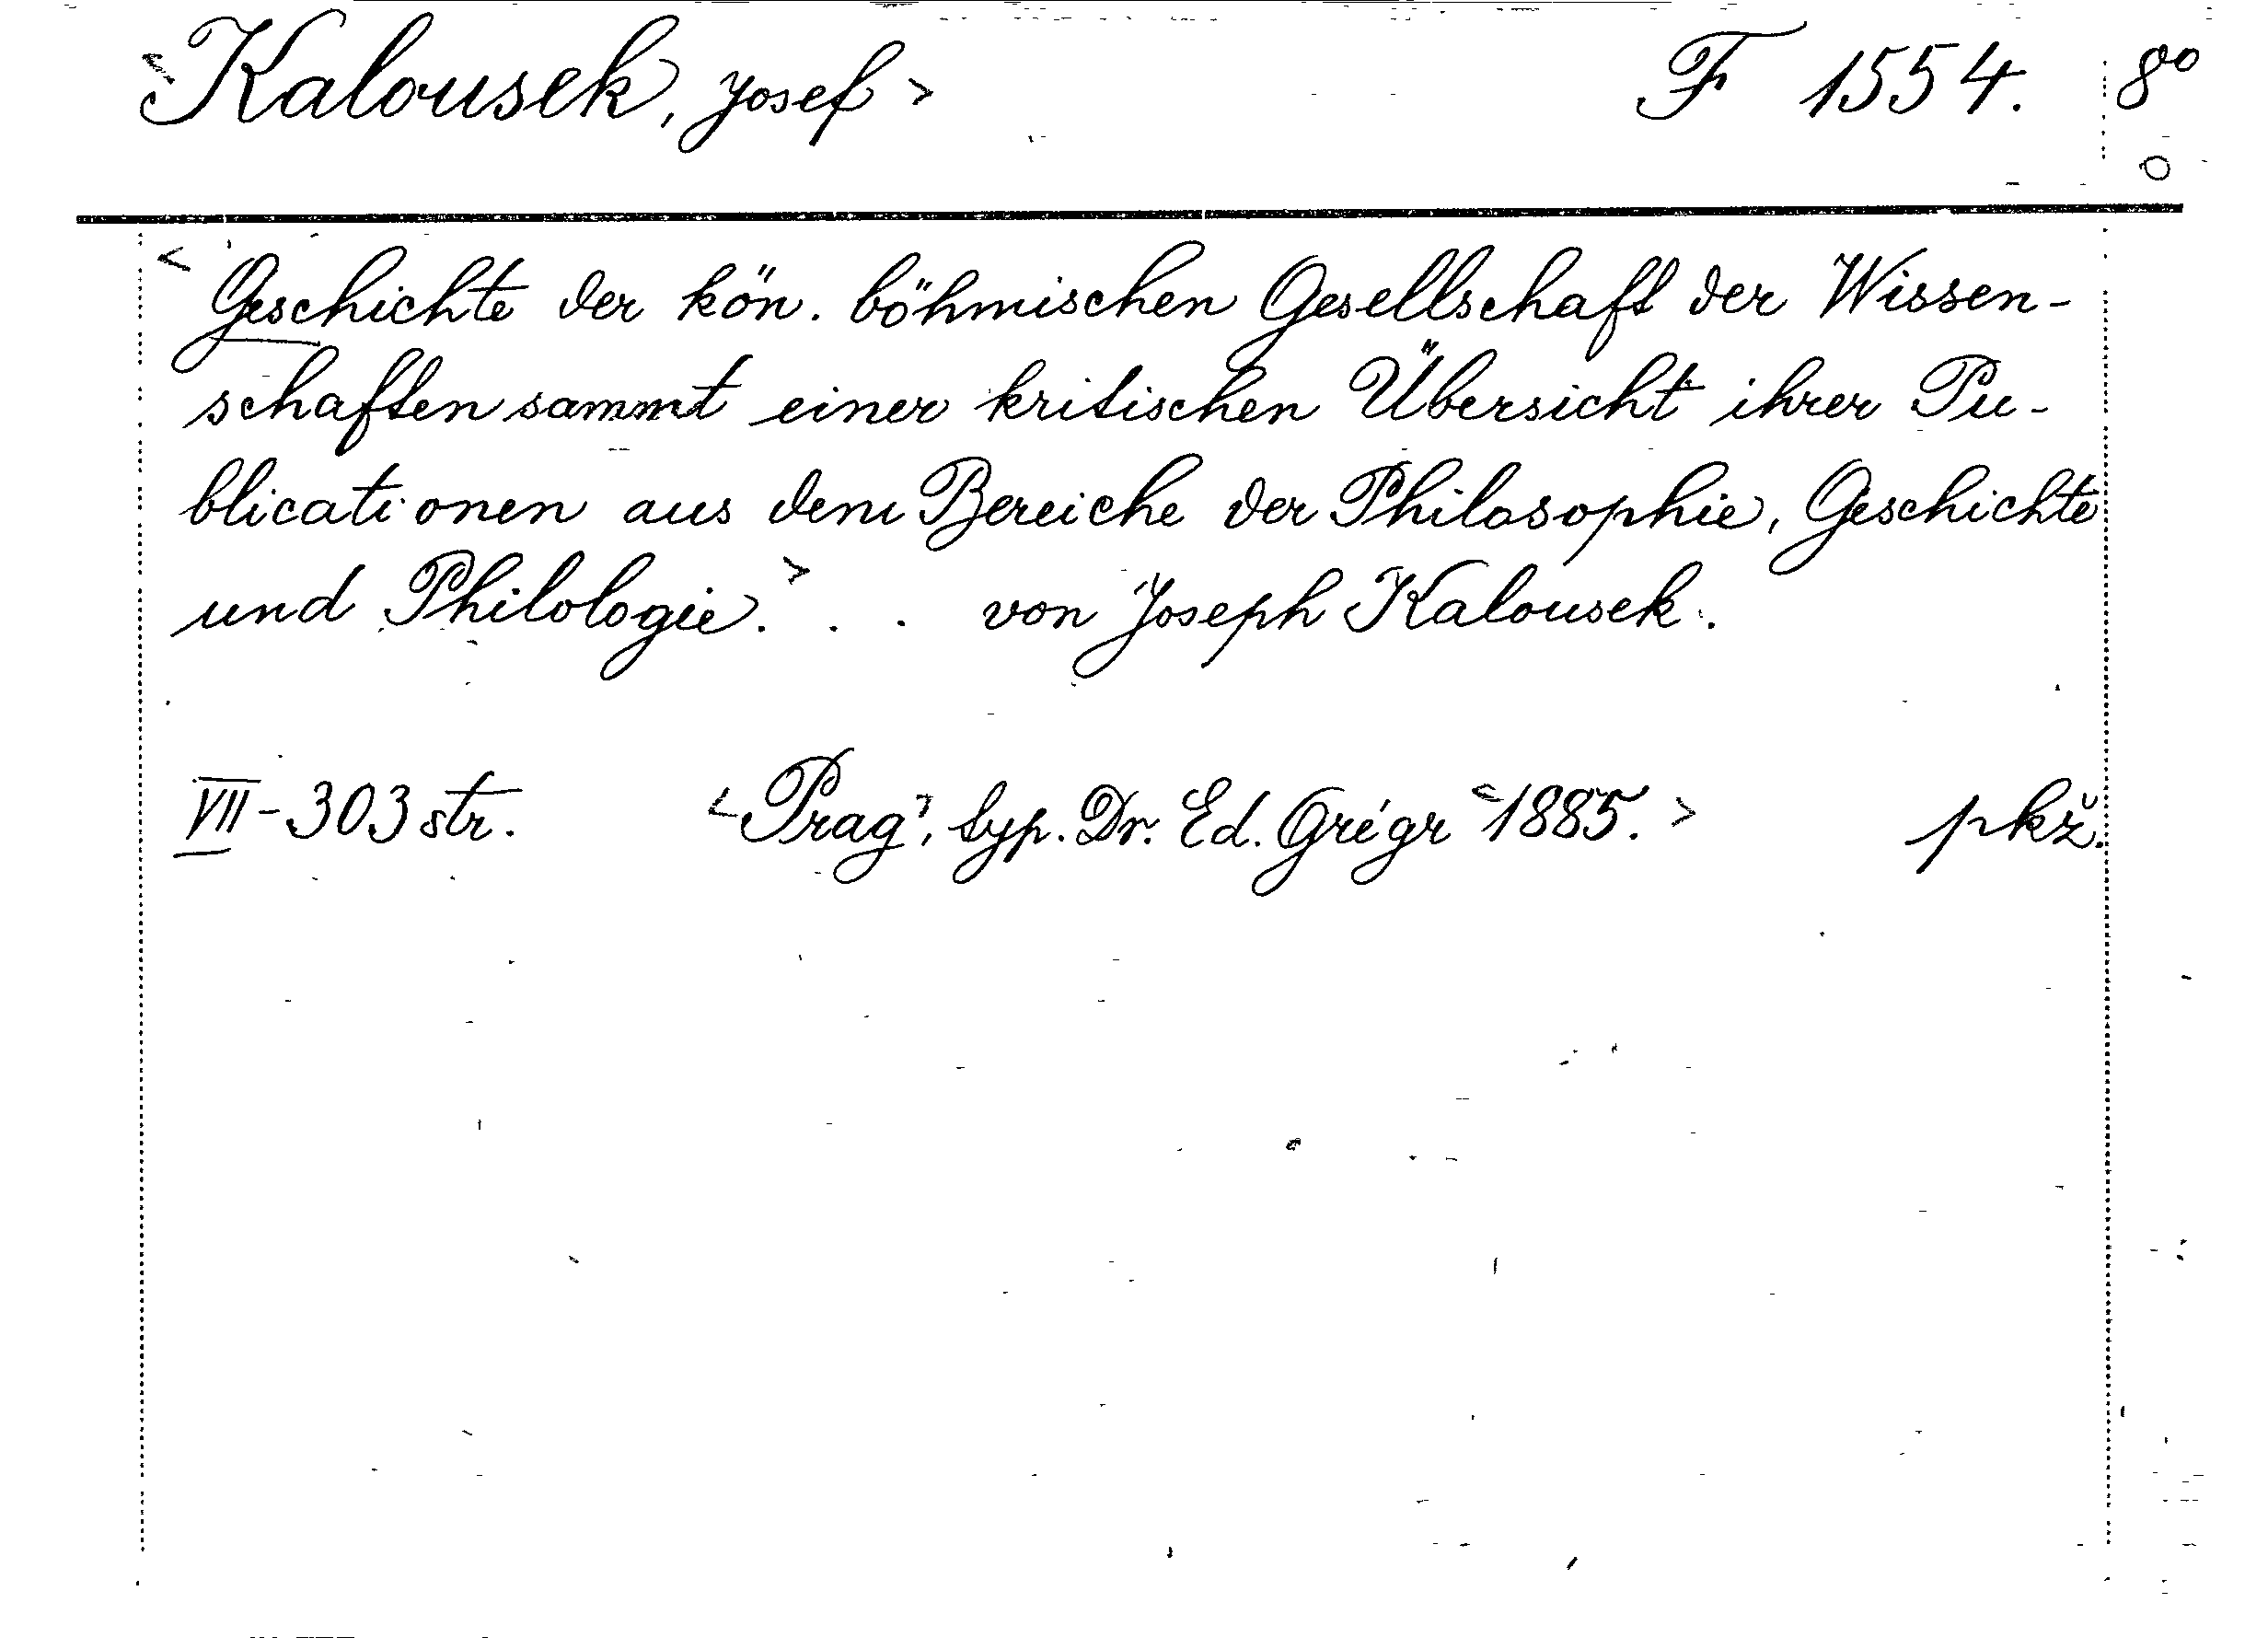 <Kalousek, Josef> F 1554. 8°
<Geschichte der kön. böhmischen Gesellschaft der Wissen-
schaften sammt einer kritischen Übersicht ihrer Pu-
blicationen aus dem Bereiche der Philosophie, Geschichte
und Philologie.> . . von Joseph Kalousek.
VII-303 str. <Prag>, typ. Dr. Ed. Grégr <1885.> pkž.